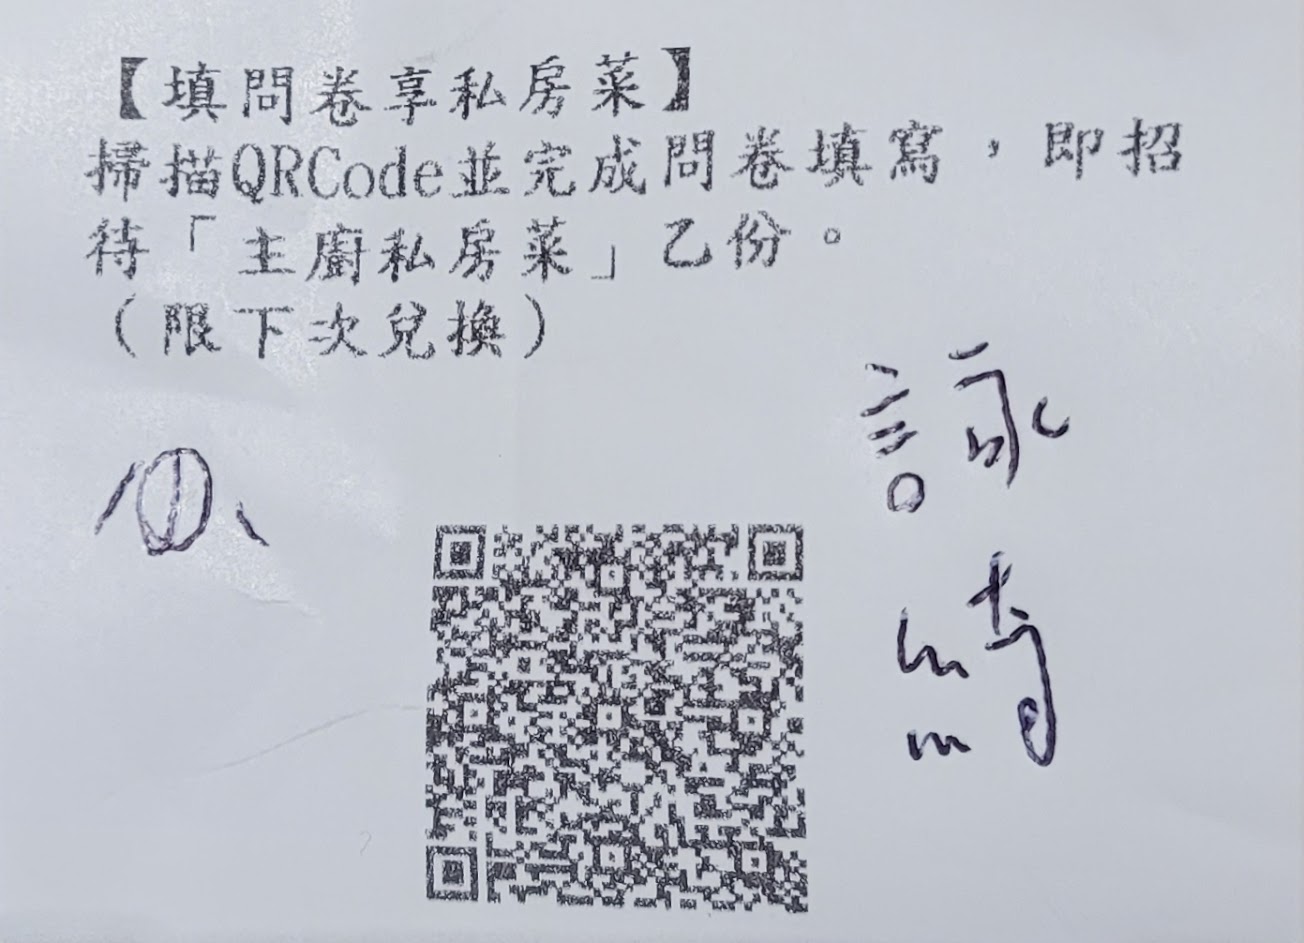 【填問卷享私房菜】
掃描QRCode並完成問卷填寫，即招
待「主廚私房菜」乙份。
（限下次兌換）
詠
綺